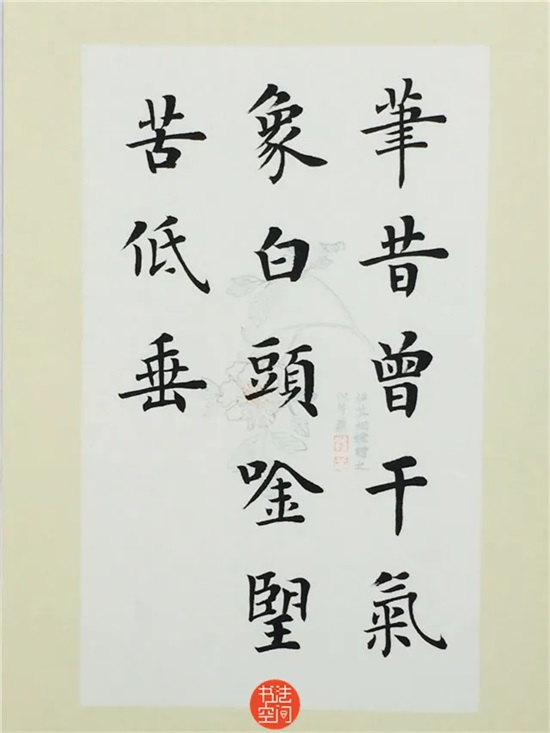 筆昔曾干氣
象白頭唫朢
苦低垂
书法
空间